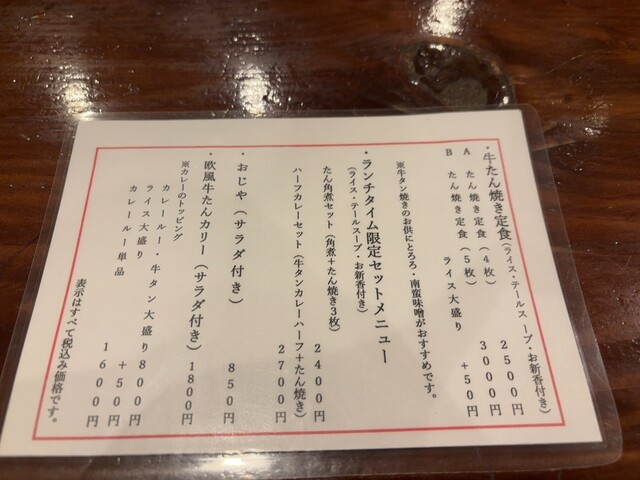 ・牛たん焼き定食(ライス・テールスープ・お新香付き)
A たん焼き定食(4枚) 2500円
B たん焼き定食(5枚) 3000円
ライス大盛り +50円
※牛タン焼きのお供にとろろ・南蛮味噌がおすすめです。
・ランチタイム限定セットメニュー
(ライス・テールスープ・お新香付き)
たん角煮セット(角煮+たん焼き3枚) 2400円
ハーフカレーセット(牛タンカレーハーフ+たん焼き) 2700円
・おじや(サラダ付き) 850円
・欧風牛たんカリー(サラダ付き) 1800円
※カレーのトッピング
カレールー・牛タン大盛り 800円
ライス大盛り +50円
カレールー単品 1600円
表示はすべて税込み価格です。